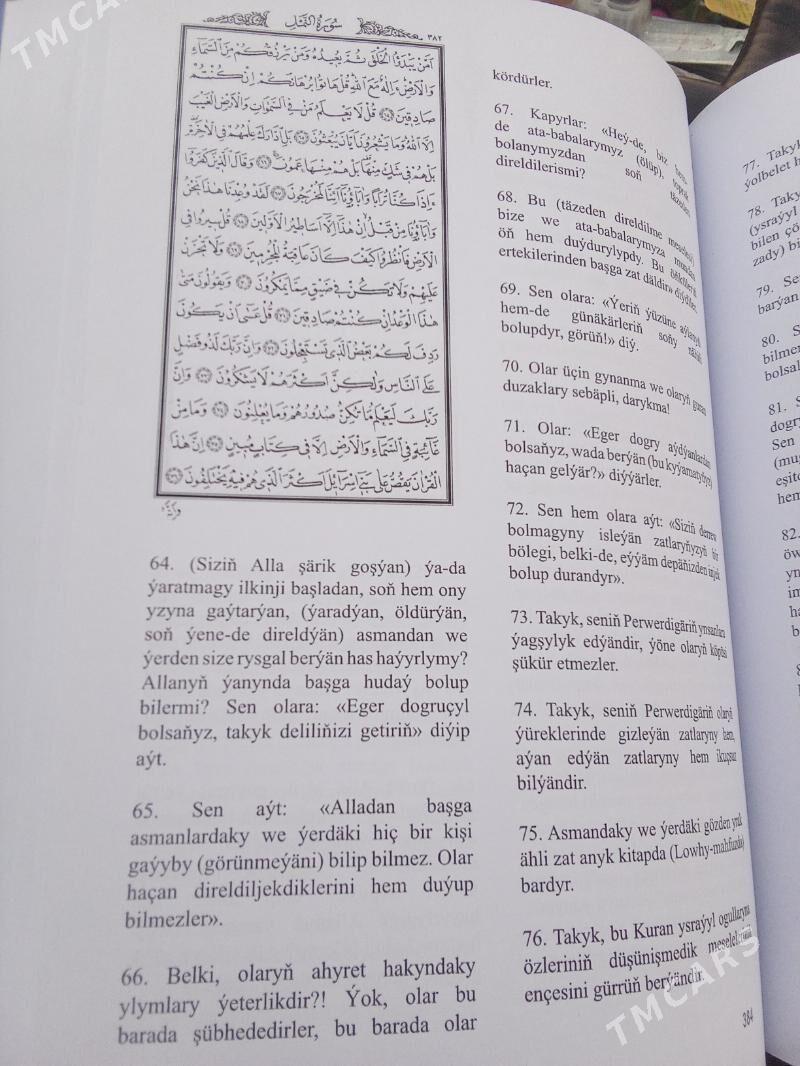 TMCARS
سورة النمل
٣٨٣
أمن يبدؤا الخلق ثم يعيده ومن يرزقكم من السماء
والأرض أإله مع الله قل هاتوا برهانكم إن كنتم
صادقين قل لا يعلم من في السموات والأرض الغيب
إلا الله وما يشعرون أيان يبعثون بل ادارك علمهم في الآخرة
بل هم في شك منها بل هم منها عمون وقال الذين كفروا
ءإذا كنا ترابا وآباؤنا أئنا لمخرجون لقد وعدنا هذا نحن
وآباؤنا من قبل إن هذا إلا أساطير الأولين قل سيروا في
الأرض فانظروا كيف كان عاقبة المجرمين ولا تحزن
عليهم ولا تكن في ضيق مما يمكرون ويقولون متى
هذا الوعد إن كنتم صادقين قل عسى أن يكون
ردف لكم بعض الذي تستعجلون وإن ربك لذو فضل
على الناس ولكن أكثرهم لا يشكرون وإن
ربك ليعلم ما تكن صدورهم وما يعلنون وما من
غائبة في السماء والأرض إلا في كتاب مبين إن هذا
القرآن يقص على بني إسرائيل أكثر الذي هم فيه يختلفون
64. (Siziň Alla şärik goşýan) ýa-da
ýaratmagy ilkinji başladan, soň hem ony
yzyna gaýtarýan, (ýaradýan, öldürýän,
soň ýene-de direldýän) asmandan we
ýerden size rysgal berýän has haýyrlymy?
Allanyň ýanynda başga hudaý bolup
bilermi? Sen olara: «Eger dogruçyl
bolsaňyz, takyk deliliňizi getiriň» diýip
aýt.
65. Sen aýt: «Alladan başga
asmanlardaky we ýerdäki hiç bir kişi
gaýyby (görünmeýäni) bilip bilmez. Olar
haçan direldiljekdiklerini hem duýup
bilmezler».
66. Belki, olaryň ahyret hakyndaky
ylymlary ýeterlikdir?! Ýok, olar bu
barada şübhededirler, bu barada olar
kördürler.
67. Kapyrlar: «Heý-de, biz hem,
de ata-babalarymyz (ölüp), toprak
bolanymyzdan soň täzeden
direldilerismi?
68. Bu (täzeden direldilme meselesi)
bize we ata-babalarymyza mundan
öň hem duýdurylypdy. Bu öňkülerin
ertekilerinden başga zat däldir» diýdiler.
69. Sen olara: «Ýeriň ýüzüne aýlanyň
hem-de günäkärleriň soňy nähili
bolupdyr, görüň!» diý.
70. Olar üçin gynanma we olaryň guran
duzaklary sebäpli, darykma!
71. Olar: «Eger dogry aýdýanlardan
bolsaňyz, wada berýän (bu kyýamatyňyz)
haçan gelýär?» diýýärler.
72. Sen hem olara aýt: «Siziň derrew
bolmagyny isleýän zatlaryňyzyň bir
bölegi, belki-de, eýýäm depäňizden injek
bolup durandyr».
73. Takyk, seniň Perwerdigäriň ynsanlara
ýagşylyk edýändir, ýöne olaryň köpüsi
şükür etmezler.
74. Takyk, seniň Perwerdigäriň olaryň
ýüreklerinde gizleýän zatlaryny hem,
aýan edýän zatlaryny hem ikuçsuz
bilýändir.
75. Asmandaky we ýerdäki gözden yrak
ähli zat anyk kitapda (Lowhy-mahfuzda)
bardyr.
76. Takyk, bu Kuran ysraýyl ogullaryna
özleriniň düşünişmedik meseleleriniň
ençesini gürrüň berýändir.
384
77. Takyk
ýolbelet h
78. Taky
(ysraýyl
bilen çö
zady) bi
79. Se
barýan
80. S
bilmer
bolsal
81. S
dogry
Sen
(muş
eşite
hem
82.
öw
yn
im
ha
b
TMCARS